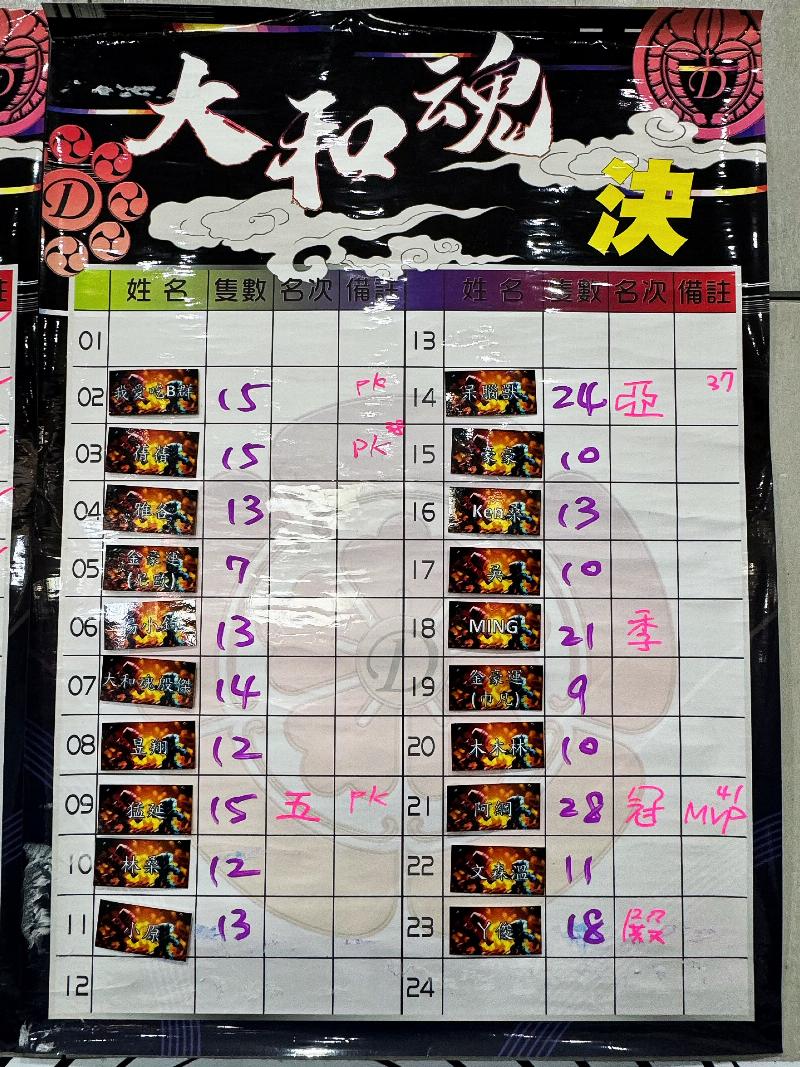 大和魂
決
姓名 隻數 名次 備註 姓名 隻數 名次 備註
01 13
02 我愛吃B群 15 pk 14 呆腦獸 24 亞 37
03 倩倩 15 pk 15 豪豪 10
04 雅各 13 16 Ken桑 13
05 金豪運 7 17 吳 10
06 楊小 13 18 MING 21 季
07 大和魂殷傑 14 19 金豪運 9
08 昱翔 12 20 木木林 10
09 猛延 15 五 pk 21 阿綱 28 冠 41 MVP
10 林桑 12 22 文森溫 11
11 小原 13 23 丫俊 18 殿
12 24